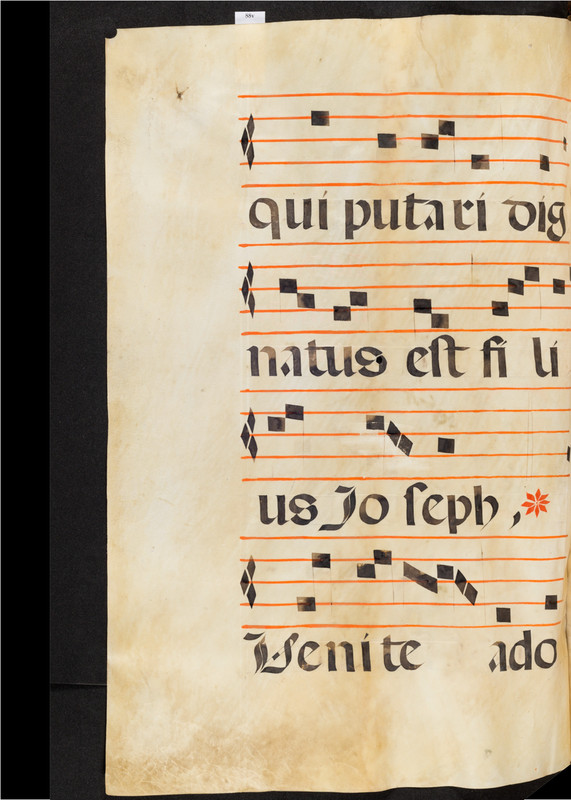 88v
qui putari dig
natus est fi li
us Jo seph,
Venite ado